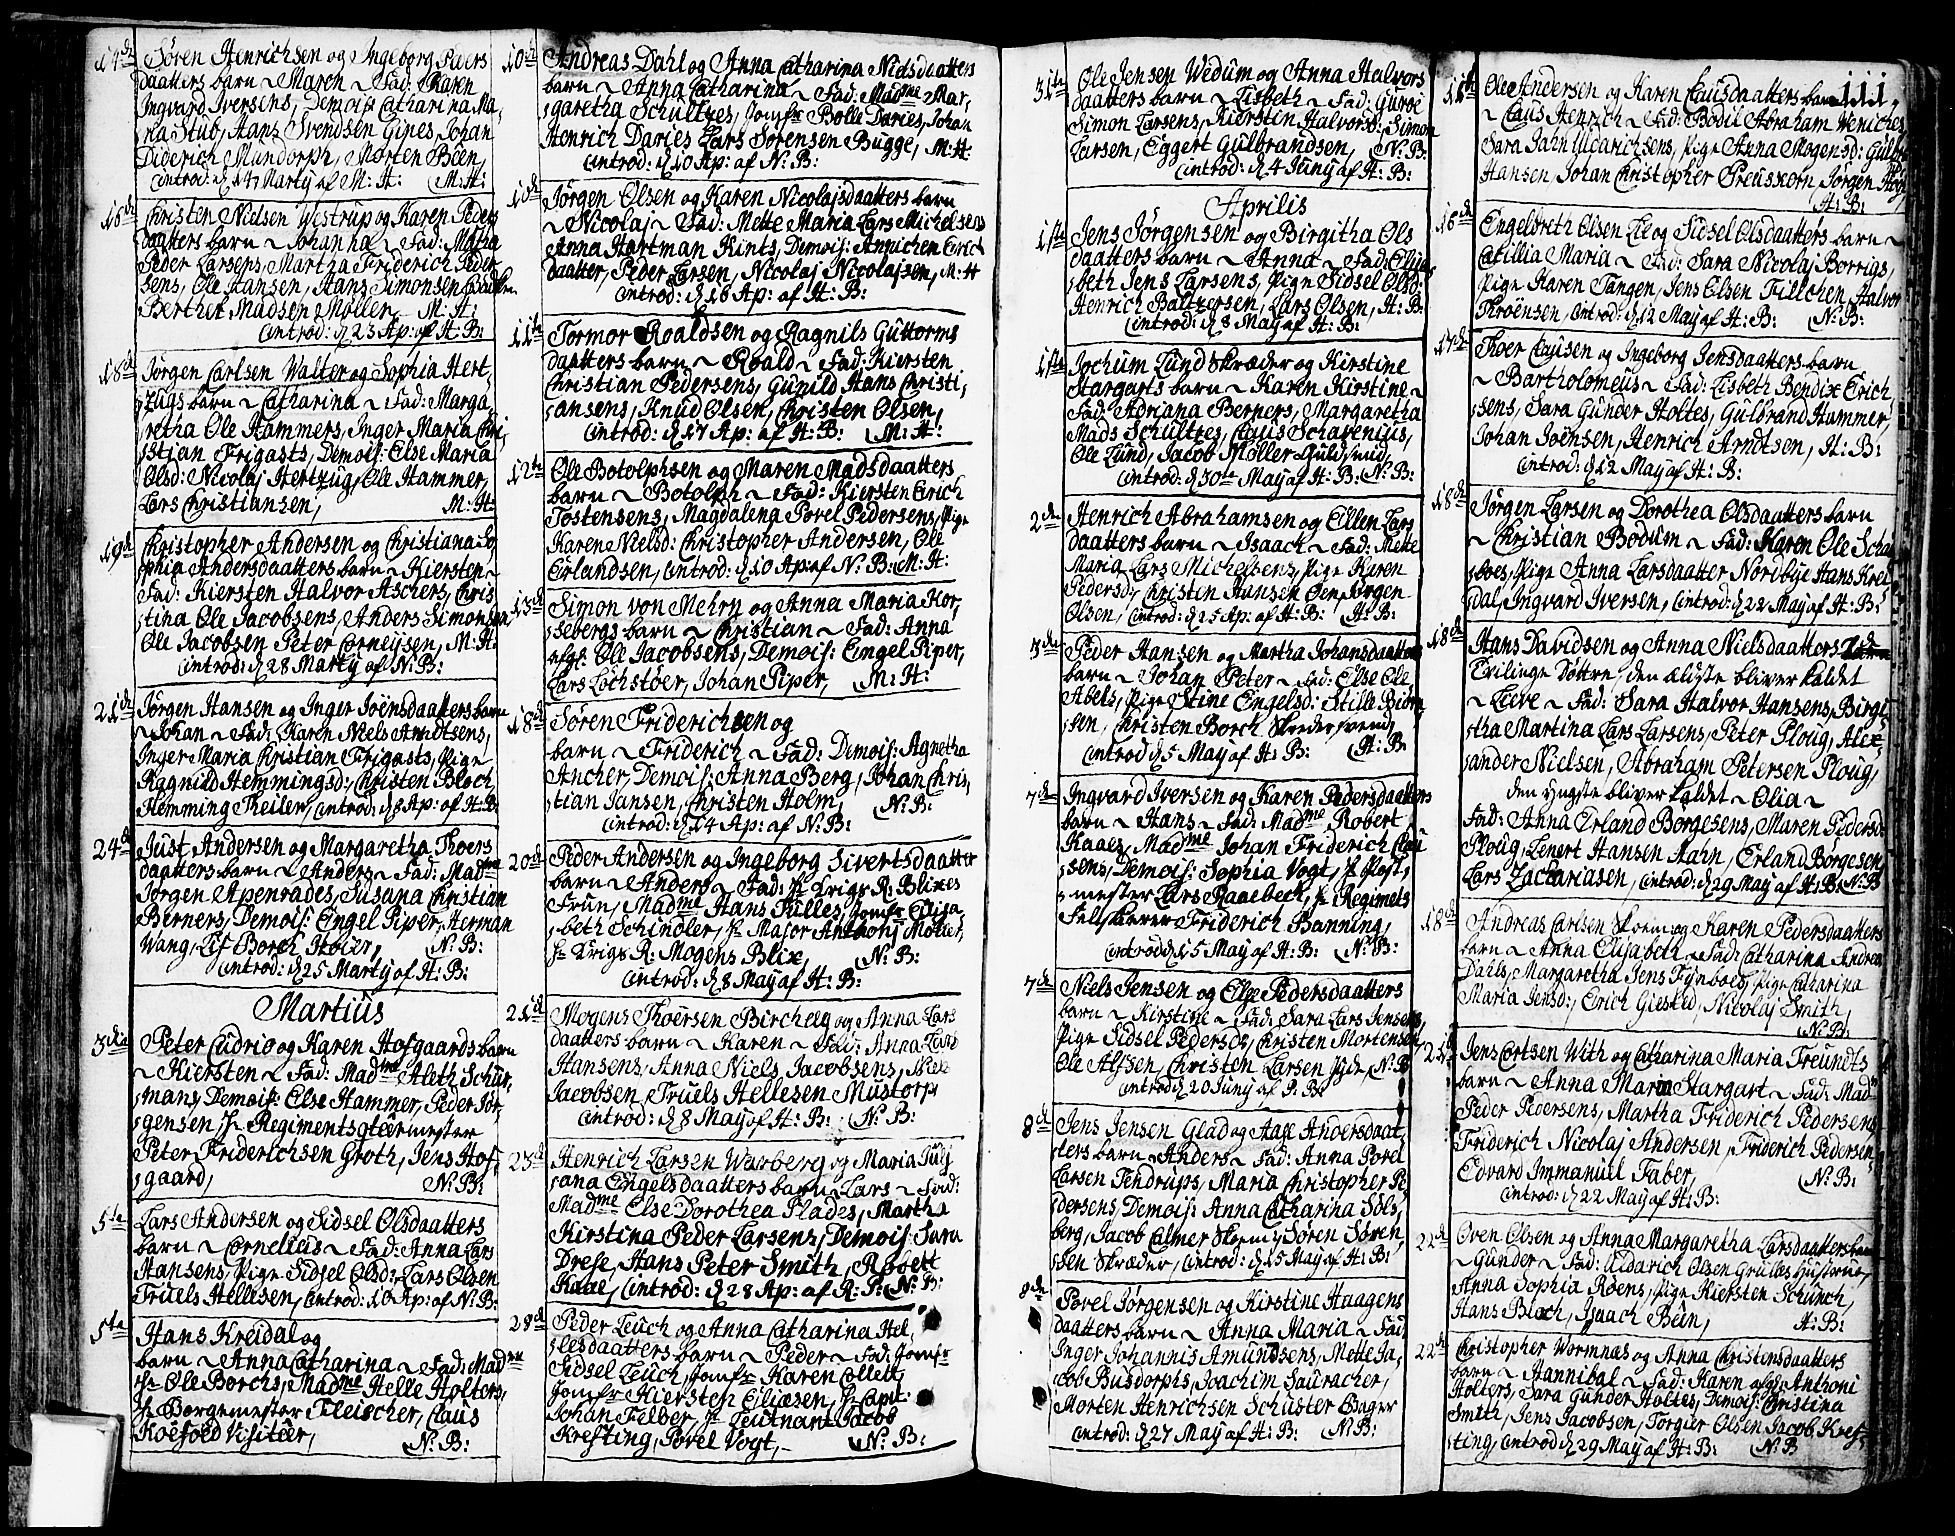 14de Søren Henrichsen og Ingeborg Peders
daatters barn ~ Maren ~ Fad: Karen
Ingvard Iversens, Demois: Catharina Ma,
ria Stub, Hans Svendsen Gines, Johan
Diderich Mündorph, Morten Been,
Introd: d: 14 Marty af M: H: M: H:
Christen Nielsen Westrup og Karen Peders
daatters barn ~ Johanna ~ Fad: Martha
Peder Larsens, Martha Friderich Peder,
sens, Ole Hansen, Hans Simonsen
Berthit Madsen Møller, M: H:
Introd: d: 23 Ap: af H: B:
18de Jørgen Carlsen Walter og Sophia Hert,
zugs barn ~ Catharina ~ Fad: Marga,
retha Ole Hammers, Inger Maria Chri,
stian Frigasts, Demois: Else Maria
Olsd: Nicolaj Hertzug, Ole Hammer,
Lars Christiansen, M: H:
19de Christopher Andersen og Christiana So,
phia Andersdaatters barn ~ Kiersten ~
Fad: Kiersten Halvor Aschers, Chris,
tina Ole Jacobsens, Anders Simonsen,
Ole Jacobsen Peter Cornelysen, M: H:
Introd: d: 28 Marty af N: B:
21de Jørgen Hansen og Inger Joensdaatters barn
~ Johan ~ Fad: Karen Niels Arndtsens,
Inger Maria Christian Frigasts, Pige
Ragnild Hemmingsd:, Christen Bloch,
Hemming Theiler, Introd: d: 8 Ap: af H: B:
24de Just Andersen og Margaretha Thoers
daatters barn ~ Anders ~ Fad: Madme
Jørgen Apenrades, Susana Christian
Berners, Demois: Engel Piper, Herman
Wang, Lif Borch Høier, N: B:
Introd: d: 25 Marty af H: B:
Martius
3die Peter Cudrio og Karen Hofgaards barn
~ Kiersten ~ Fad: Madme Aleth Schur,
mans, Demois: Else Hammer, Peder Jør,
gensen, Hr Regimentsqteermester
Peter Friderichsen Groth, Jens Hof,
gaard, N: B:
5te Lars Andersen og Sidsel Olsdaatters
barn ~ Cornelius ~ Fad: Anna Lars
Hansens, Pige Sidsel Olsd: Lars Olsen
Truels Hellesen, Introd: d: 10 Ap: af N: B:
5te Hans Kreidal og
barn ~ Anna Catharina ~ Fad: Madme
Hr Ole Borchs, Madme Helle Holters,
Hr Borgemester Fleischer, Claus
Koefoed Visiteer, N: B:
10de Andreas Dahl og Anna Catharina Nielsdaatters
barn ~ Anna Catharina ~ Fad: Madme Mar,
garetha Schultzes, Jomfr Bolle Daries, Johan
Henrich Daries Lars Sørensen Bugge, M: H:
Introd: d: 10 Ap: af N: B:
10de Jørgen Olsen og Karen Nicolajsdaatters barn
~ Nicolaj ~ Fad: Mette Maria Lars Michelsens
Anna Hartman Hints, Demois: Annichen Erich
daatter, Peder Larsen, Nicolaj Nicolajsen, M: H
Introd: d: 16 Ap: af H: B:
11te Tormor Roaldsen og Ragnils Guttorms
daatters barn ~ Roald ~ Fad: Kiersten
Christian Pedersens, Gunild Hans Christi,
ansens, Knud Olsen, Christen Olsen,
Introd: d: 17 Ap: af H: B: M: H:
12te Ole Botolphsen og Maren Madsdaatters
barn ~ Botolph ~ Fad: Kiersten Erich
Tostensens, Magdalena Povel Pedersens, Pige
Karen Nielsd: Christopher Andersen, Ole
Erlandsen, Introd: d: 10 Ap: af N: B: M: H:
13de Simon von Mehrn og Anna Maria Hor,
sebergs barn ~ Christian ~ Fad: Anna
afgl: Ole Jacobsens, Demois: Engel Piper,
Lars Lochstøer, Johan Piper, M: H:
18de Søren Friderichsen og
barn ~ Friderich ~ Fad: Demois: Agnetha
Ancher, Demois: Anna Berg, Johan Chris,
tian Jansen, Christen Holm, N: B:
Introd: d: 14 Ap: af N: B:
20de Peder Andersen og Ingeborg Sivertsdaatter
barn ~ Anders ~ Fad: Hr Krigs R: Blixes
Frue, Madme Hans Tulles, Jomfr Elisa,
beth Schindler, Hr Major Anthonj Møller,
Hr Krigs R: Mogens Blix, N: B:
Introd: d: 8 May af H: B:
21de Mogens Thoersen Birch og Anna Lars
daatters barn ~ Karen ~ Fad: Anna Lars
Hansens, Anna Niels Jacobsens, Niels
Jacobsen, Truels Hellesen Mustorp
Introd: d: 8 May af H: B: N: B:
23de Henrich Larsen Warberg og Maria Juli
ana Engelsdaatters barn ~ Lars ~ Fad:
Madme Else Dorothea Plades, Martha
Kirstina Peder Larsens, Demois: Sara
Drese, Hans Peter Smith, Robert
Kaae, Introd: d: 28 Ap: af R: P: N: B:
28de Peder Leuch og Anna Catharina Hel,
lesdaatters barn ~ Peder ~ Fad: Jomfr
Sidsel Leuch, Jomfr Karen Collett,
Jomfr Kiersten Eliæsen, Hr Capt:
Johan Felber, Hr Leutnant Jacob
Krefting, Povel Vogt, ~ N: B:
31te Ole Jensen Wedum og Anna Halvors
daatters barn ~ Lisbeth ~ Fad: Guroe
Simon Larsens, Kiersten Halvorsd: Simon
Larsen, Eggert Gulbrandsen, N: B:
Introd: d: 4 Juny af H: B:
Aprilis
1ste Jens Jørgensen og Birgitha Ols
daatters barn ~ Anna ~ Fad: Elisa,
beth Jens Larsens, Pige Sidsel Olsd:
Henrich Baltzersen, Lars Olsen, H: B:
Introd: d: 8 May af H: B:
1ste Jochum Lund Skræder og Kirstine
Stargarts barn ~ Karen Kirstine ~
Fad: Adriana Berners, Margaretha
Mads Schultzes, Claus Schavenius,
Ole Lund, Jacob Møller Guldsmid,
Introd: d: 30te May af H: B: N: B:
2den Henrich Abrahamsen og Ellen Lars
daatters barn ~ Isaach ~ Fad: Mette
Maria Lars Michelsens, Pige Karen
Pedersd: Christen Hansen Øen, Jørgen
Olsen, Introd: d: 25 Ap: af H: B: H: B:
3die Peder Hansen og Martha Johansdaatters
barn ~ Johan Peter ~ Fad: Else Ole
Abels, Pige Stine Engelsd: Stille Biørn,
sen, Christen Borch Skredersvend
Introd d: 5 May af H: B: H: B:
7de Ingvard Iversen og Karen Pedersdaatters
barn ~ Hans ~ Fad: Madme Robert
Kaaes, Madme Johan Friderich Clau
sens, Demois: Sophia Vogt, Hr Post,
mester Lars Raaebeck, Hr Regimets
Feltskærer Friderich Banning,
Introd d: 15 May af H: B: N: B:
7de Niels Jensen og Else Pedersdaatters
barn ~ Kirstine ~ Fad: Sara Lars Jensens,
Pige Sidsel Pedersd:, Christen Mortensen,
Ole Alfsen, Christen Larsen Jyde, N: B
Introd d: 20 Juny af P: B:
8de Jens Jensen Glad og Aase Andersdaat,
ters barn ~ Anders ~ Fad: Anna Povel
Larsen Tendrups, Maria Christopher Pe,
dersens, Demois: Anna Catharina Sols,
berg, Jacob Calmer Skoem: Søren Søren,
sen Skræder, Introd: d: 15 May af H: B:
8de Povel Jørgensen og Kirstine Haagens
daatters barn ~ Anna Maria ~ Fad:
Inger Johannis Amundsens, Mette Ja,
cobe Busdorphs, Joachim Sauracher,
Morten Henrichsen Schuster Bager
Introd: d: 27 May af H: B: N: B:
111.
11te Ole Andersen og Karen Clausdaatters barn
~ Claus Henrich ~ Fad: Bodil Abraham Weniches
Sara Jahn Uldarichsens, Pige Anna Mogensd: Gulbr
Hansen Johan Christopher Preuskorn, Jørgen
H: B:
16de Engelbreth Olsen Lie og Sidsel Olsdaatters barn ~
Cecillia Maria ~ Fad: Sara Nicolaj Borrigs,
Pige Karen Tangen, Jens Olsen Tillohen, Halvor
Thrøensen, Introd: d: 12 May af H: B: N: B:
17de Thoer Clausen og Ingeborg Jensdaatters barn
~ Bartholomeus ~ Fad: Lisbeth Bendix Erich,
sens, Sara Gunder Holtes, Gulbrand Hammer,
Johan Joensen, Henrich Arndtsen, H: B:
Introd: d: 12 May af H: B:
18de Jørgen Larsen og Dorothea Olsdaatters barn
~ Christian Bodum ~ Fad: Karen Ole Scha,
boes, Pige Anna Larsdaatter Nordbye Hans Krei
dal, Ingvard Iversen, Introd: d: 22 May af H: B:
18de Hans Davidsen og Anna Nielsdaatters
Tvilinge Døttre, den ældste bliver kaldet
~ Live ~ Fad: Sara Halvor Hansens, Birgi
tha Martina Lars Larsens, Peter Ploug, Alex,
ander Nielsen, Abraham Petersen Ploug,
den yngste bliver kaldet ~ Olia ~
Fad: Anna Erland Børgesens, Maren Pedersd:
Ploug, Lenert Hansen Aarn, Erland Børgesen,
Lars Zachariasen, Introd: d: 29 May af H: B: N: B
18de Andreas Carlsen Skoem: og Karen Pedersdaatters
barn ~ Anna Elisabeth ~ Fad: Catharina Andreas
Dahls, Margaretha Jens Fynboes, Pige Catharina
Maria Jensd:, Erich Giested, Nicolaj Smith,
N: B:
Jens Cortsen With og Catharina Maria Freundts
barn ~ Anna Maria Stargart ~ Fad: Madme
Peder Pedersens, Martha Friderich Pedersens,
Friderich Nicolaj Andersen, Friderich Pedersen,
Edvard Immanuel Faber, N: B:
Introd: d: 22 May af H: B:
22de Oven Olsen og Anna Margaretha Larsdaatters barn
~ Gunder ~ Fad: Uldarich Olsen Grulæs Hustrue,
Anna Sophia Roens, Pige Kiersten Schunck,
Hans Bloch, Isaach Been, H: B:
22de Christopher Wormnæs og Anna Christensdaatters
barn ~ Hannibal ~ Fad: Karen afgl: Anthoni
Holters, Sara Gunder Holtes, Demois: Christina
Smith, Jens Jacobsen, Torgier Olsen, Jacob Kref,
ting, Introd d: 29 May af H: B: N: B